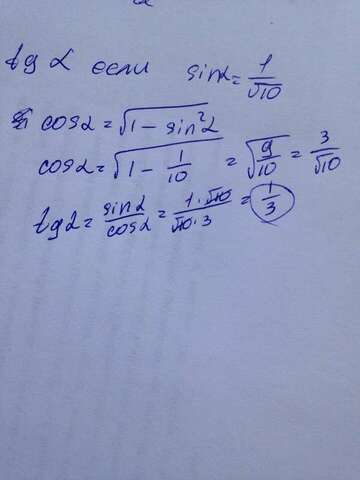 tg α если sinα = 1/√10
cosα = √(1 - sin²α)
cosα = √(1 - 1/10) = √(9/10) = 3/√10
tgα = sinα/cosα = 1·√10/√10·3 = 1/3